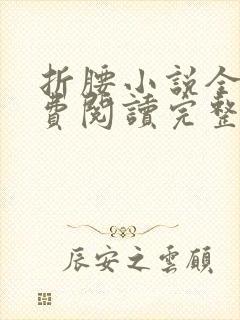 折腰小説全
費閱讀完整
辰安之雲顧